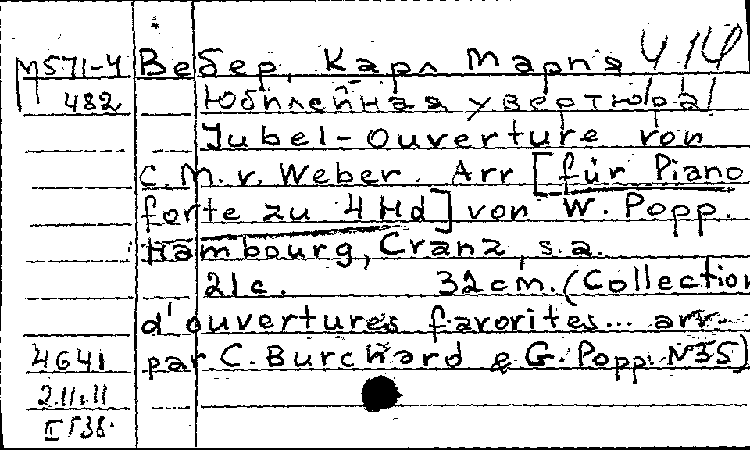 М571-4 Вебер, Карл Мария 414
482 Юбилейная увертюра
Jubel-Ouverture von
C.M.v. Weber. Arr [für Piano
forte zu 4 Hd] von W. Popp.
Hambourg, Cranz, s.a.
21c. 32cm. (Collection
d'ouvertures favorites... arr
4641 par C. Burchard e G. Popp. N35)
2.11.11